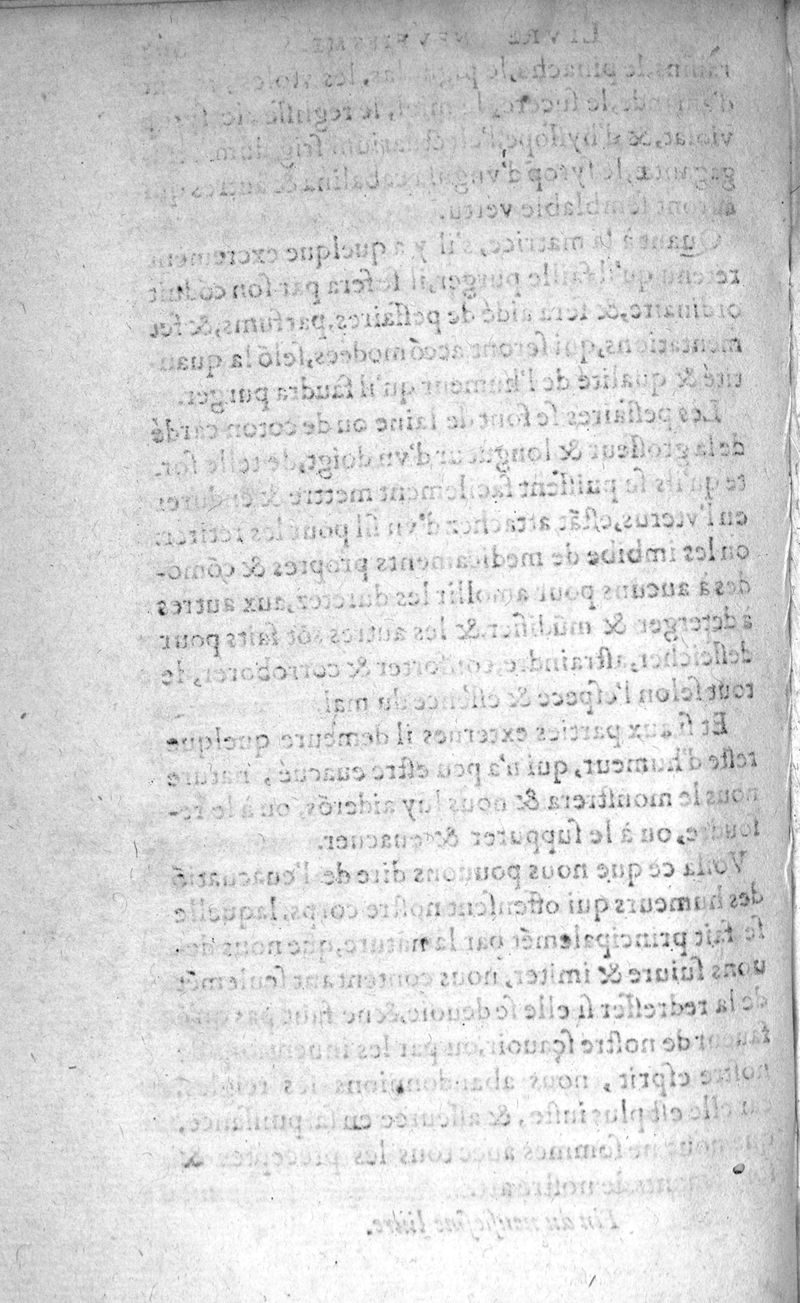 LIVRE NEVFIESME
raisins, le pinachs, le
le succre, le miel, le reglisse
violat, & d'hyssope, l'electuarium
le syrop d'vngula cabalina & autres qui
auront semblable vertu.
Quant à la matrice, s'il y a quelque excrement
retenu qu'il faille purger, il se fera par son cōduit
ordinaire, & sera aidé de pessaires, parfums, & fo-
mentations, qui seront accōmodees, selō la quan-
tité & qualité de l'humeur qu'il faudra purger.
Les pessaires se font de laine ou de coton cardé
de la grosseur & longueur d'vn doigt, de telle sor-
te qu'ils se puissent facilement mettre & endurer
en l'vterus, estāt attachez d'vn fil pour les retirer,
on les imbibe de medicaments propres & cōmo-
des à aucuns pour amollir les duretez, aux autres
à deterger & mūdifier, & les autres sōt faits pour
desseicher, astraindre, conforter & corroborer, le
tout selon l'espece & essence du mal.
Et si aux parties externes il demeure quelque
reste d'humeur, qui n'a peu estre euacué, nature
nous le monstrera & nous luy aiderōs, ou à le re-
soudre, ou à le suppurer & euacuer.
Voila ce que nous pouuons dire de l'euacuatiō
des humeurs qui offensent nostre corps, laquelle
se fait principalemēt par la nature, que nous de-
uons suiure & imiter, nous contentant seulemēt
de la redresser si elle se deuoie, & ne faut pas qu'en
faueur de nostre sçauoir, ou par les inuentions de
nostre esprit, nous abandonnions ses reigles:
car elle est plus iuste, & asseuree en sa puissance,
que nous ne sommes auec tous les preceptes &
de nostre art.
Fin du neufiesme liure.